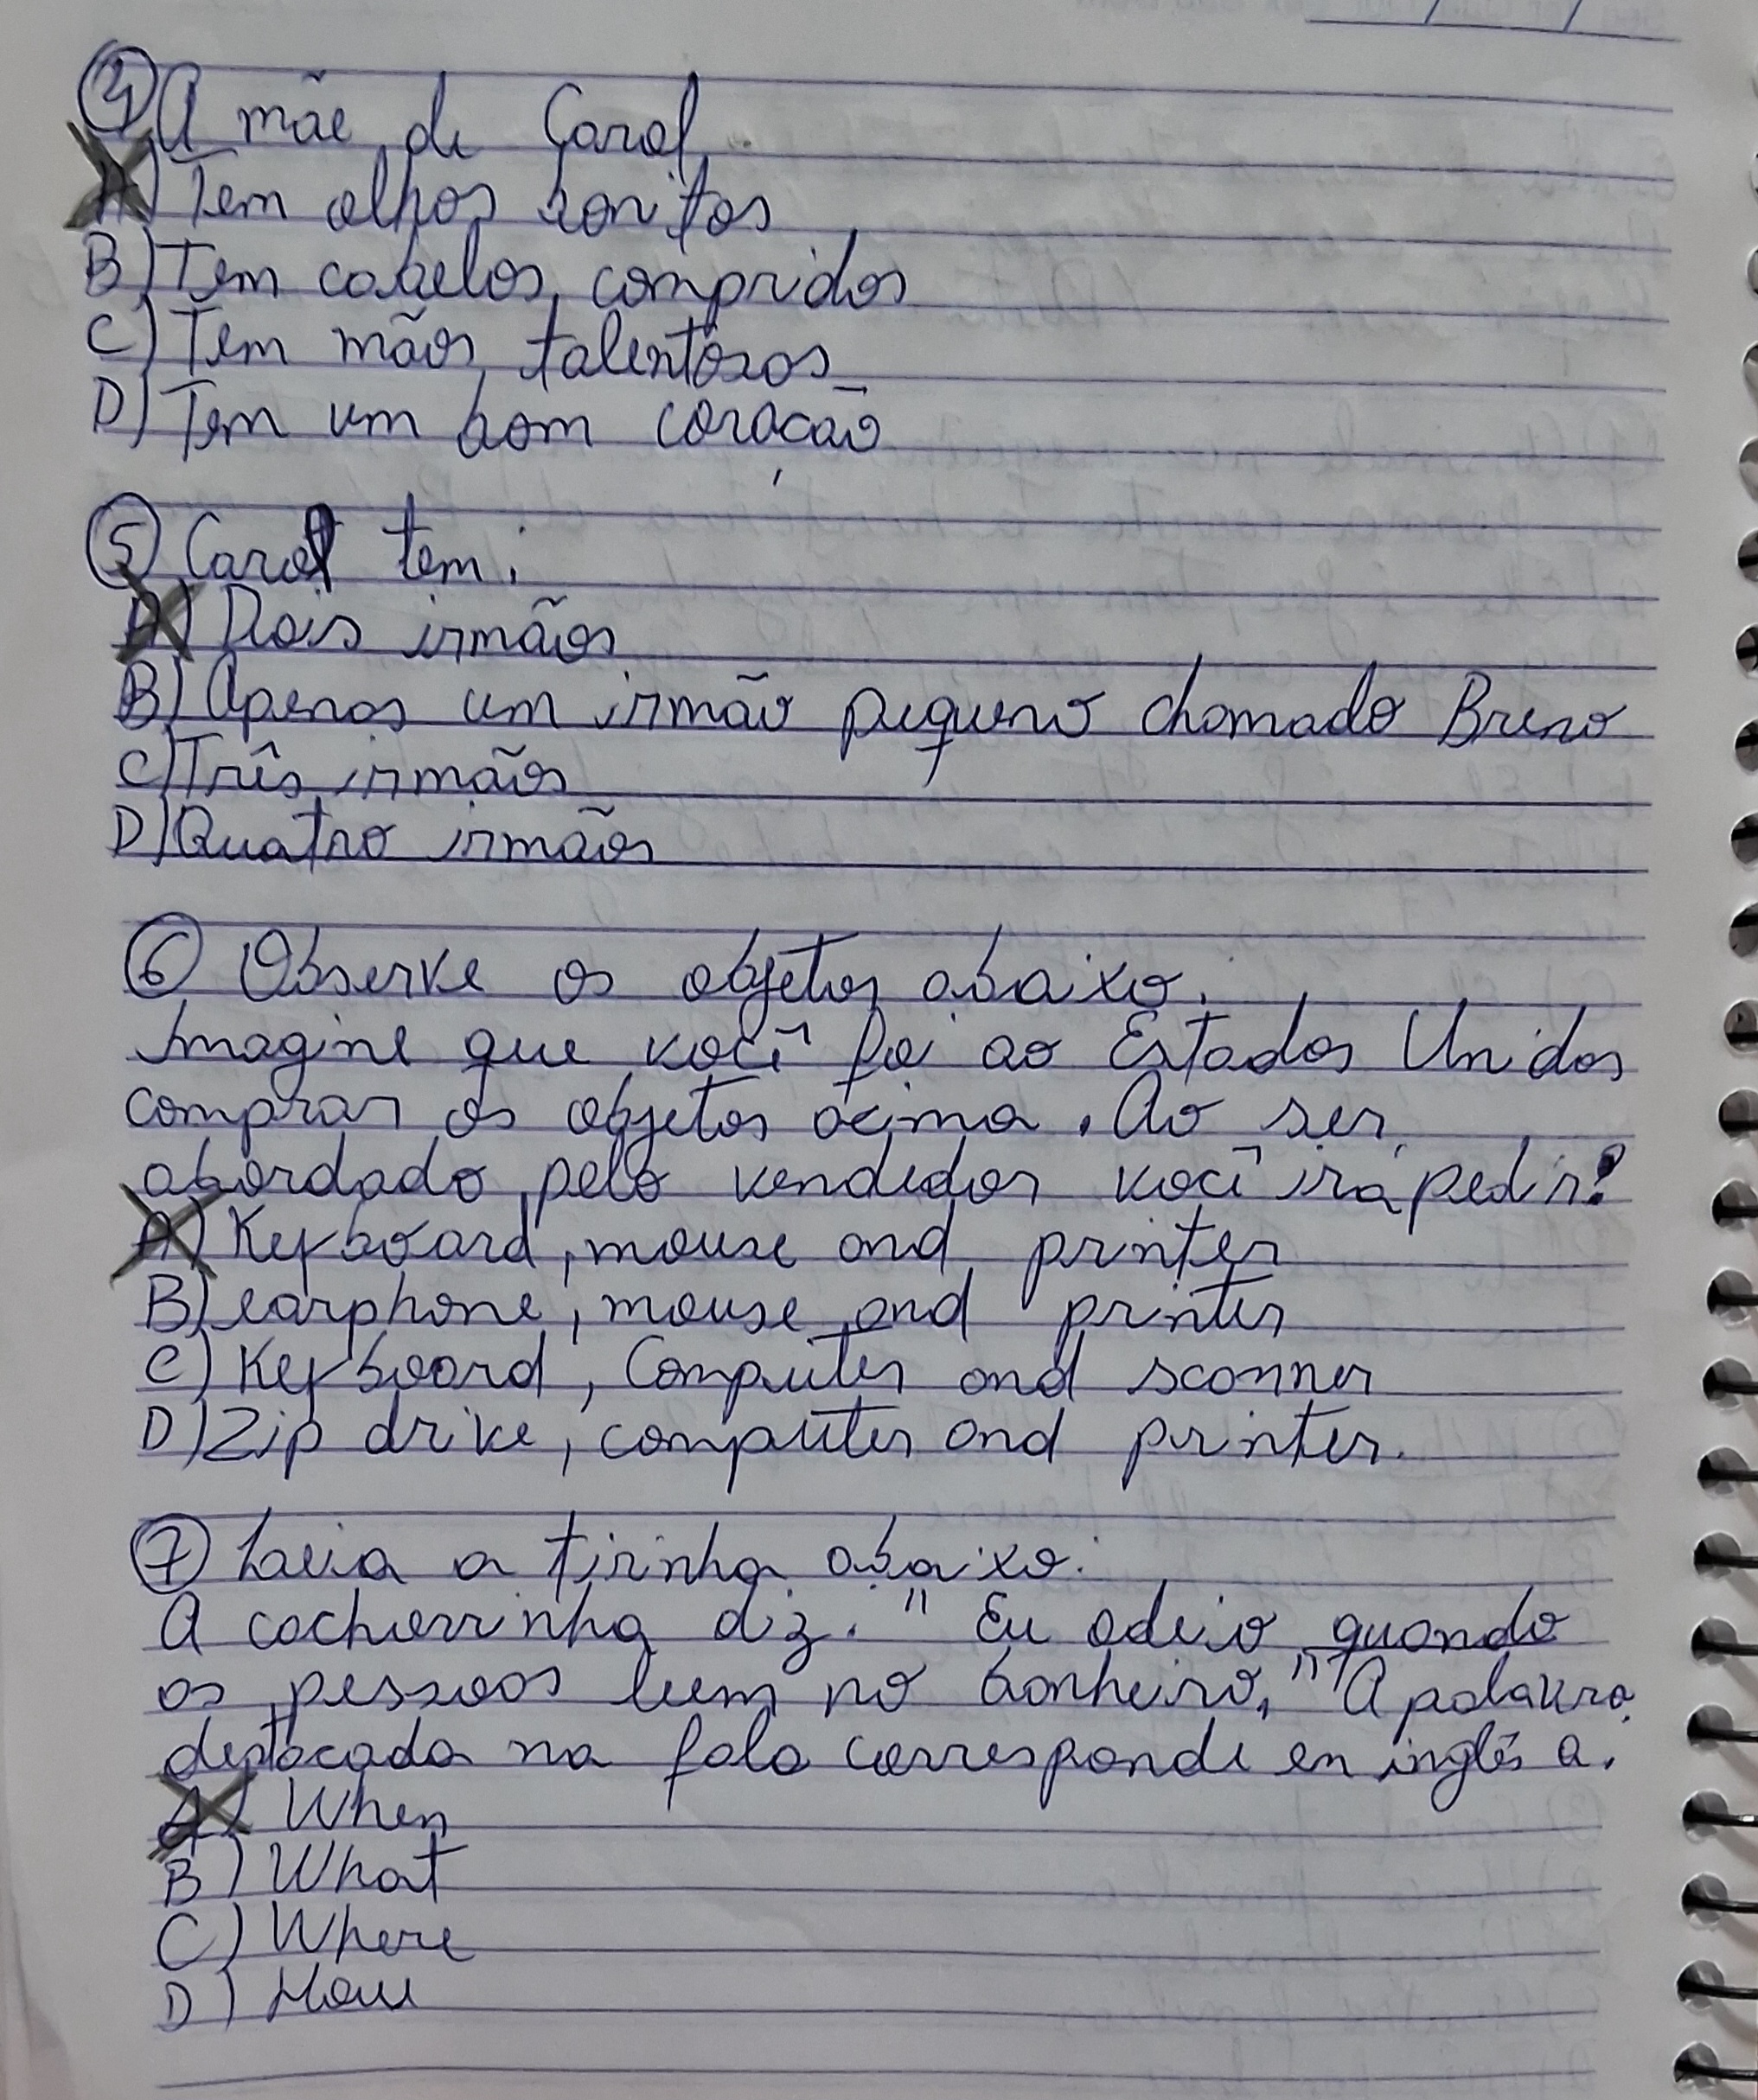 4 A mãe de Carol
A) Tem olhos bonitos
B) Tem cabelos compridos
C) Tem mãos talentosas
D) Tem um bom coração
5 Carol tem:
A) Dois irmãos
B) Apenas um irmão pequeno chamado Breno
C) Três irmãos
D) Quatro irmãos
6 Observe os objetos abaixo.
Imagine que você foi ao Estados Unidos
comprar os objetos acima. Ao ser
abordado pelo vendedor você irá pedir?
A) Keyboard, mouse and printer
B) earphone, mouse and printer
C) Keyboard, Computer and scanner
D) Zip drive, computer and printer.
7 Leia a tirinha abaixo:
A cachorrinha diz: " Eu odeio quando
as pessoas leem no banheiro," A palavra
destacada na fala corresponde en inglês a:
A) When
B) What
C) Where
D) How